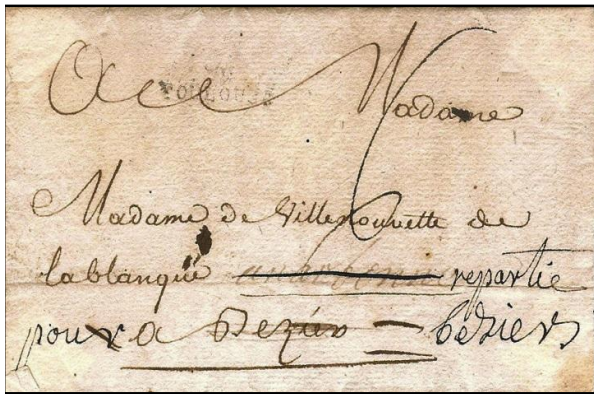 TOULOUSE
Madame
Madame de Villenouvette de
lablanque a narbonne repartie
pour a Bezier beziers